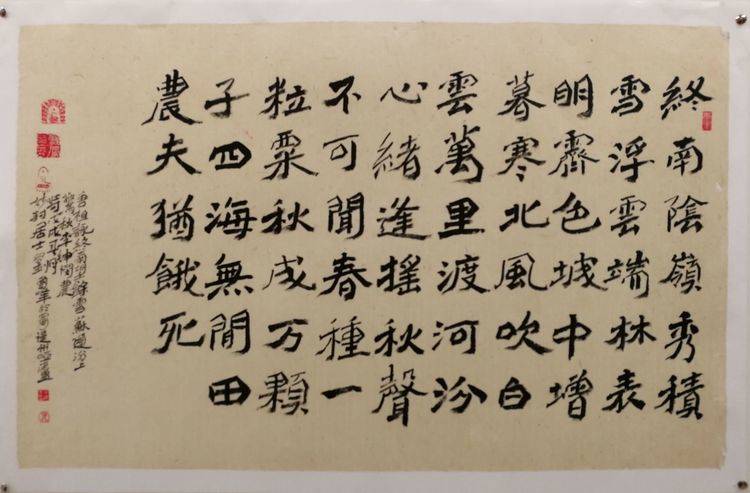 終南陰嶺秀積
雪浮雲端林表
明霽色城中增
暮寒北風吹白
雲萬里渡河汾
心緒逢摇秋聲
不可聞春種一
粒粟秋成万顆
子四海無閒田
農夫猶餓死
唐祖詠終南望餘雪蘇頲汾上
驚秋李紳憫農
居士